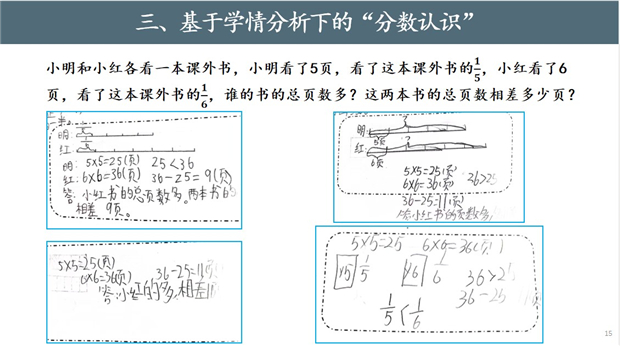 三、基于学情分析下的“分数认识”
小明和小红各看一本课外书，小明看了5页，看了这本课外书的1/5，小红看了6
页，看了这本课外书的1/6，谁的书的总页数多？这两本书的总页数相差多少页？
明:
红:
明: 5×5=25(页) 25<36
红: 6×6=36(页) 36-25=9(页)
答: 小红书的总页数多。两本书的
相差 9页。
明:
5页
红:
6页
5×5=25(页)
6×6=36(页) 26>25
36-25=11(页)
答小红书的页数多,
5×5=25(页)
6×6=36(页) 36-25=11(页)
答:小红的多,相差11
5×5=25 6×6=36(页)
1/5 1/6 36>25
36-25
1/5<1/6
15